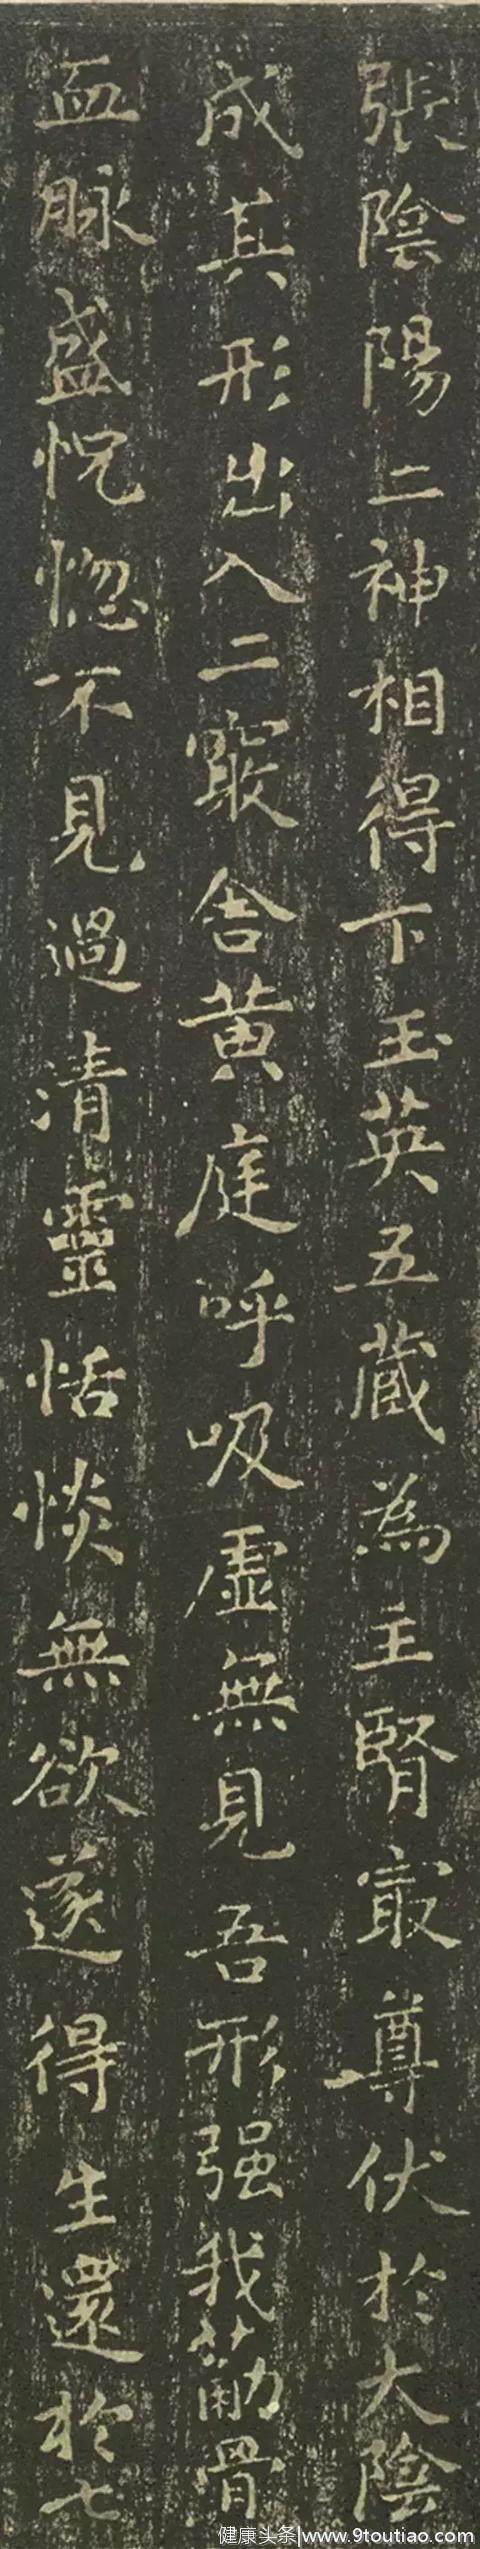 張陰陽二神相得下玉英五藏為主腎㝡尊伏於大陰
成其形出入二竅舎黄庭呼吸虚無見吾形强我筋骨
血脉盛怳惚不見過清靈恬惔無欲遂得生還於七
健康头条|www.9toutiao.com